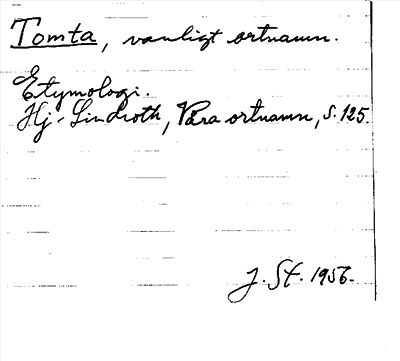 Tomta, vanligt ortnamn.
Etymologi.
Hj. Lindroth, Våra ortnamn, s. 125.
J. St. 1956.